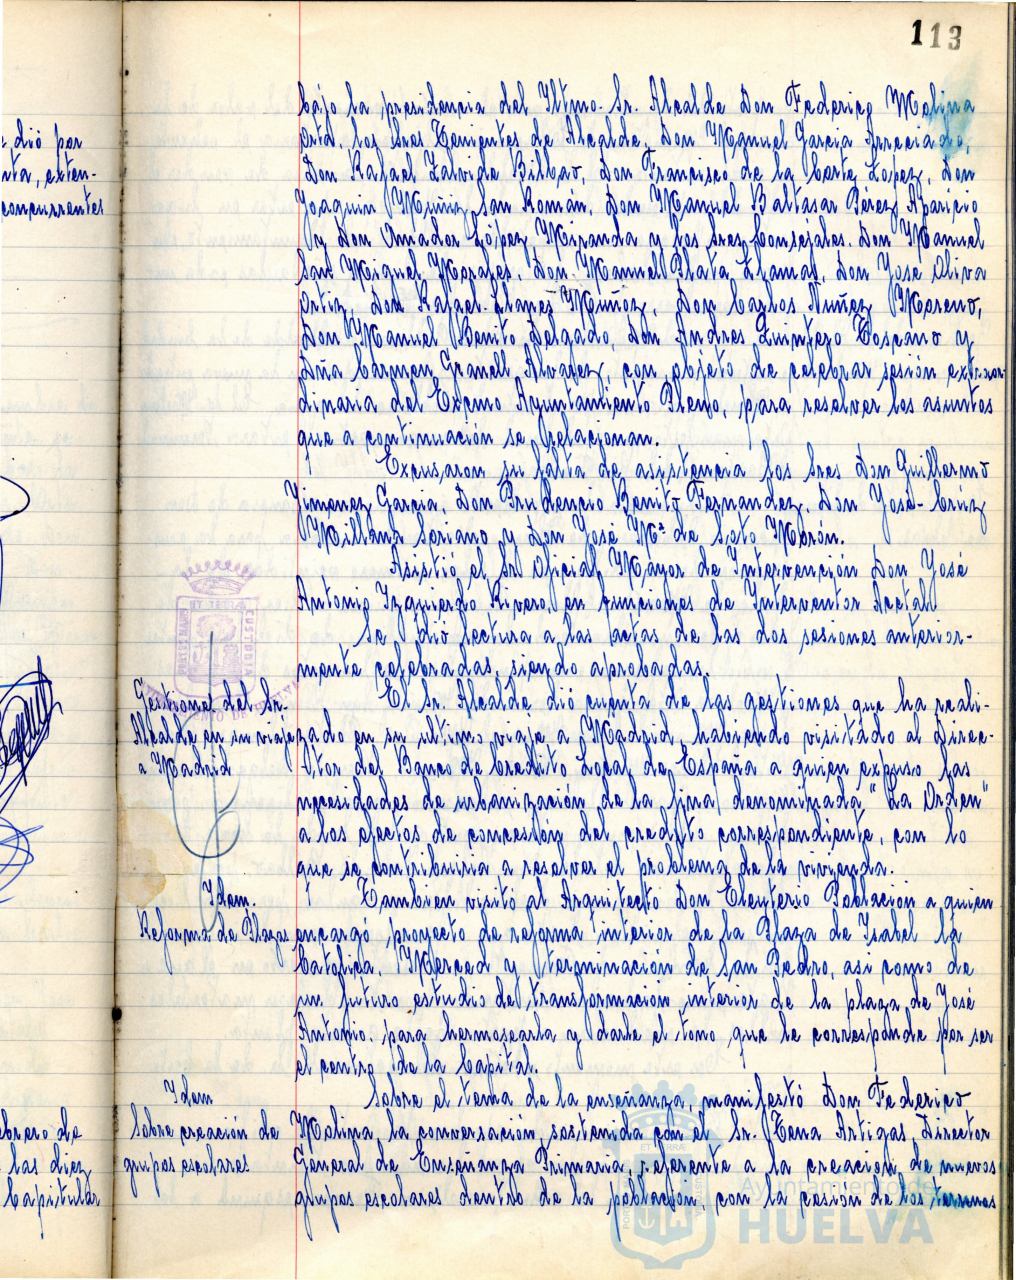 113
bajo la presidencia del Iltmo. Sr. Alcalde Don Federico Molina
Orta, los Sres Tenientes de Alcalde, Don Manuel Garcia
Don Rafael Zalvide Bilbao, Don Francisco de la Corte López, Don
Joaquin Muñiz San Román, Don Manuel Baltasar Pérez Aparicio
y Don Amador López Miranda y los Sres Consejales. Don Manuel
San Miguel Morales, Don Manuel Plata Llamas, Don José Oliva
Ortiz, Don Rafael Muñoz, Don Carlos Nuñez Moreno,
Don Manuel Benito Delgado, Don Andres Quintero Toscano y
Dña Carmen Granell Alvarez, con objeto de celebrar sesión extraor-
dinaria del Excmo Ayuntamiento Pleno, para resolver los asuntos
que a continuación se relacionan.
Excusaron su falta de asistencia los Sres Don Guillermo
Jimenez Garcia, Don Prudencio Benito Fernandez, Don José-Cruz
Millana Soriano y Don José Mª de Soto Morón.
Asistió el Sr. Oficial Mayor de Intervención Don José
Antonio Izquierdo Rivero, en funciones de Interventor Acctal
Se dió lectura a las actas de las dos sesiones anterior-
mente celebradas, siendo aprobadas.
Gestiones del Sr.
Alcalde en su viaje
a Madrid
El Sr. Alcalde dió cuenta de las gestiones que ha reali-
zado en su ultimo viaje a Madrid habiendo visitado al Direc-
tor del Banco de Credito Local de España a quien expuso las
necesidades de urbanización de la finca denominada "La Orden"
a los efectos de concesión del credito correspondiente, con lo
que se contribuiria a resolver el problema de la vivienda.
Idem.
Reforma de Plazas
Tambien visitó al Arquitecto Don Eleuterio Población a quien
encargó proyecto de reforma interior de la Plaza de Isabel la
Catolica, Merced y terminación de San Pedro, asi como de
un futuro estudio de transformación interior de la plaza de José
Antonio para hermosearla y darle el tono que le corresponde por ser
el centro de la Capital.
Idem
Sobre creación de
grupos escolares
Sobre el tema de la enseñanza, manifestó Don Federico
Molina, la conversación sostenida con el Sr. Tena Artigas, Director
General de Enseñanza Primaria, referente a la creación de nuevos
grupos escolares dentro de la población, con la cesión de los terrenos
dió por
concurrentes
las diez
Capitular
Ayuntamiento de
HUELVA